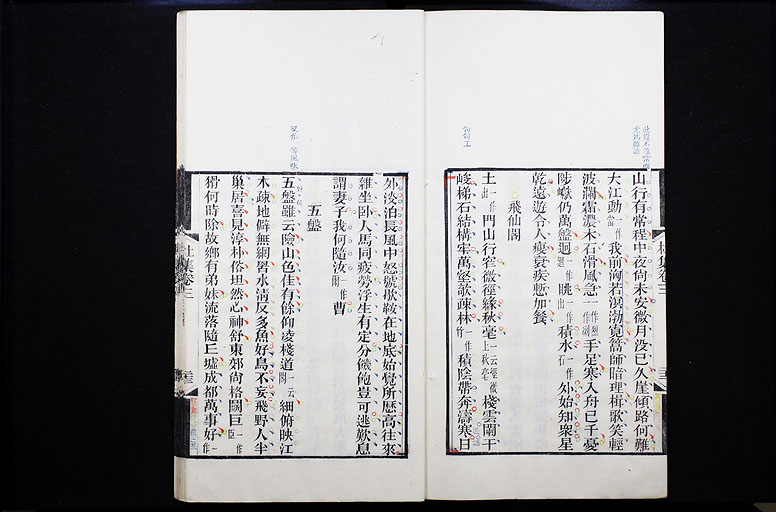 杜集卷三
山行有常程中夜尚未安微月没已久崖傾路何難
大江動一作當我前洶若溟渤寬篙師暗理楫歌笑輕
波瀾霜濃木石滑風急一作烈一作剡手足寒入舟已千憂
陟巘仍萬盤迴一作迥眺一作出積水一作石外始知衆星
乾遠遊令人瘦衰疾慙加餐
句句工
飛仙閣
土一作出門山行窄微徑緣秋毫一云徑微上秋毫棧雲闌干
峻梯石結構牢萬壑欹疎林一作竹積陰帶奔濤寒日
外淡泊長風中怒號歇鞍在地底始覺所歷高往來
雜坐卧人馬同疲勞浮生有定分饑飽豈可逃歎息
謂妻子我何隨汝一作爾曹
五盤
五盤雖云險山色佳有餘仰凌棧道一云閣細俯映江
木疎地僻無網罟水清反多魚好鳥不妄飛野人半
巢居喜見淳朴俗坦然心神舒東郊尚格鬬巨一作臣
猾何時除故鄉有弟妹流落隨丘墟成都萬事好一作
杜集卷三